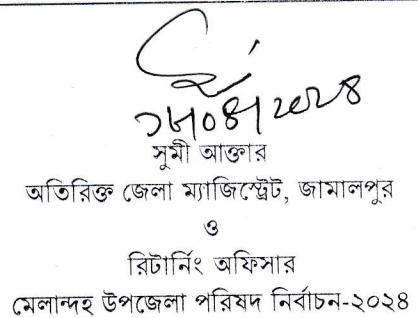 ১৮/০৪/২০২৪
সুমী আক্তার
অতিরিক্ত জেলা ম্যাজিস্ট্রেট, জামালপুর
ও
রিটার্নিং অফিসার
মেলান্দহ উপজেলা পরিষদ নির্বাচন-২০২৪